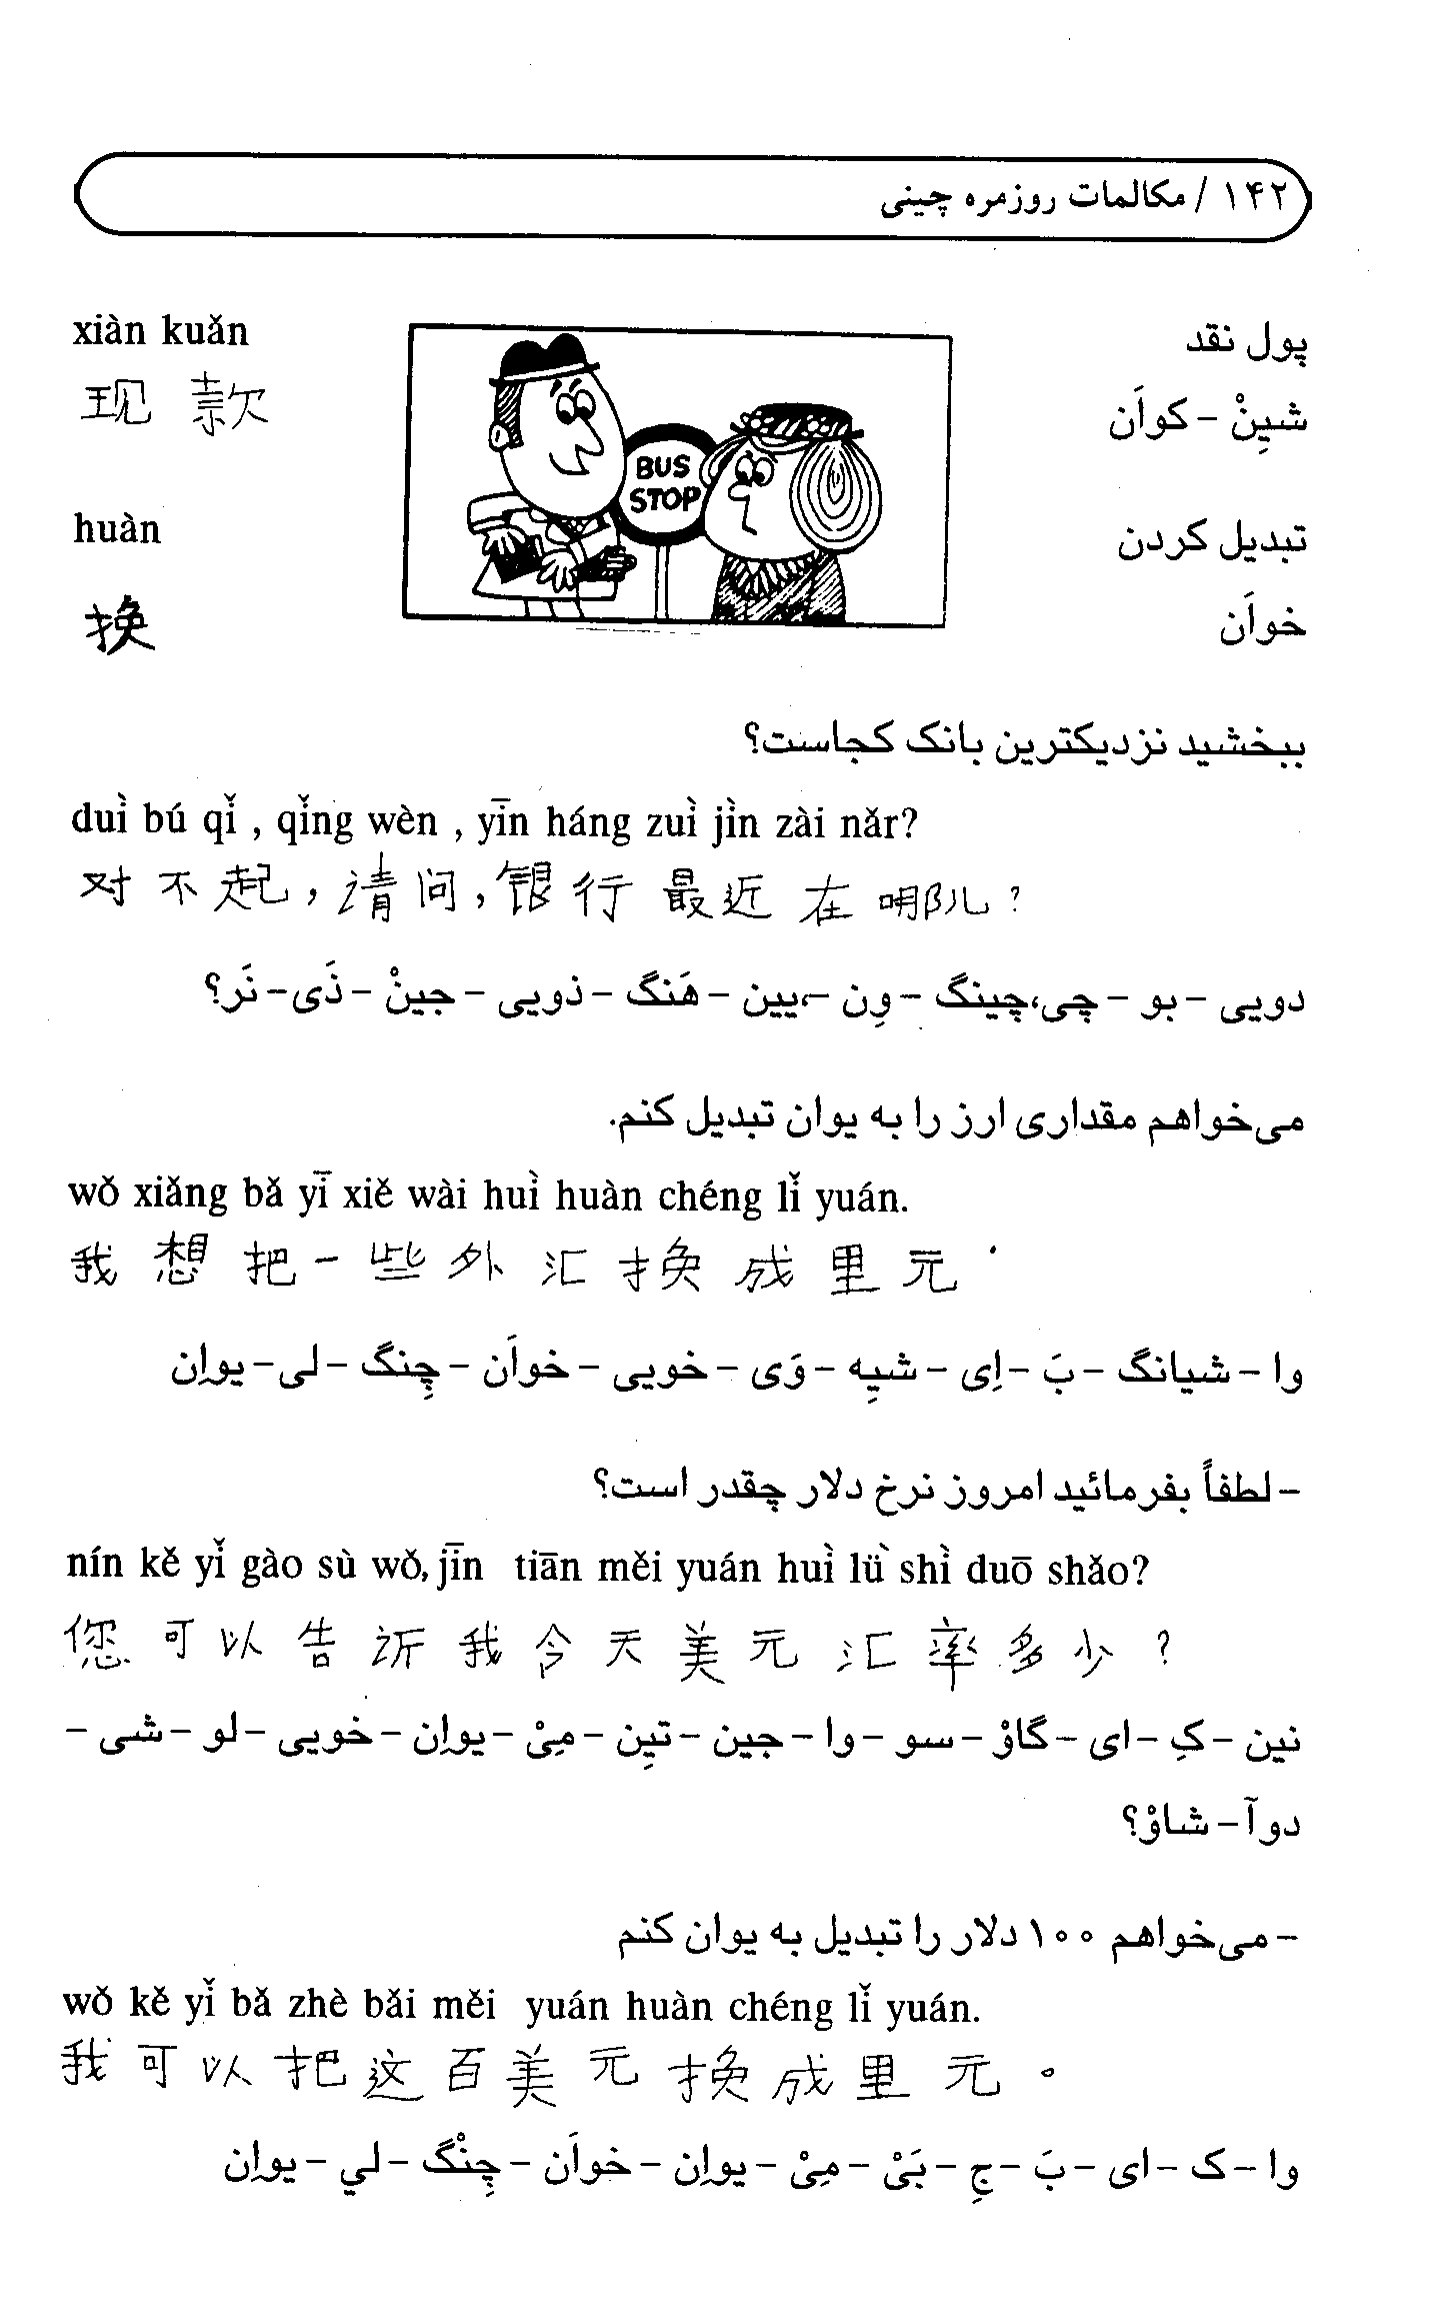 ۱۴۲ / مکالمات روزمره چینی
xiàn kuǎn
پول نقد
现 款
شیِنْ - کواَن
BUS
STOP
huàn
تبدیل کردن
换
خواَن
ببخشید نزدیکترین بانک کجاست؟
duì bú qǐ , qǐng wèn , yīn háng zuì jìn zài nǎr?
对 不 起 , 请 问 , 银 行 最 近 在 哪儿 ?
دویی - بو - چی،چینگ - وِن -،یین - هَنگ - ذویی - جینْ - ذَی - نَر؟
می‌خواهم مقداری ارز را به یوان تبدیل کنم.
wǒ xiǎng bǎ yī xiě wài huì huàn chéng lǐ yuán.
我 想 把 一 些 外 汇 换 成 里 元 .
وا - شیانگ - بَ - اِی - شیِه - وَی - خویی - خواَن - چِنگ - لی - یواِن
- لطفاً بفرمائید امروز نرخ دلار چقدر است؟
nín kě yǐ gào sù wǒ, jīn tiān měi yuán huì lǜ shì duō shǎo?
您 可 以 告 诉 我 今 天 美 元 汇 率 多 少 ?
نین - کِ - ای - گاوْ - سو - وا - جین - تیِن - مِیْ - یواِن - خویی - لو - شی -
دوآ - شاوْ؟
- می‌خواهم ۱۰۰ دلار را تبدیل به یوان کنم
wǒ kě yǐ bǎ zhè bǎi měi yuán huàn chéng lǐ yuán.
我 可 以 把 这 百 美 元 换 成 里 元 。
وا - ک - ای - بَ - جِ - بَیْ - مِیْ - یواِن - خواَن - چِنْگ - لي - یواِن